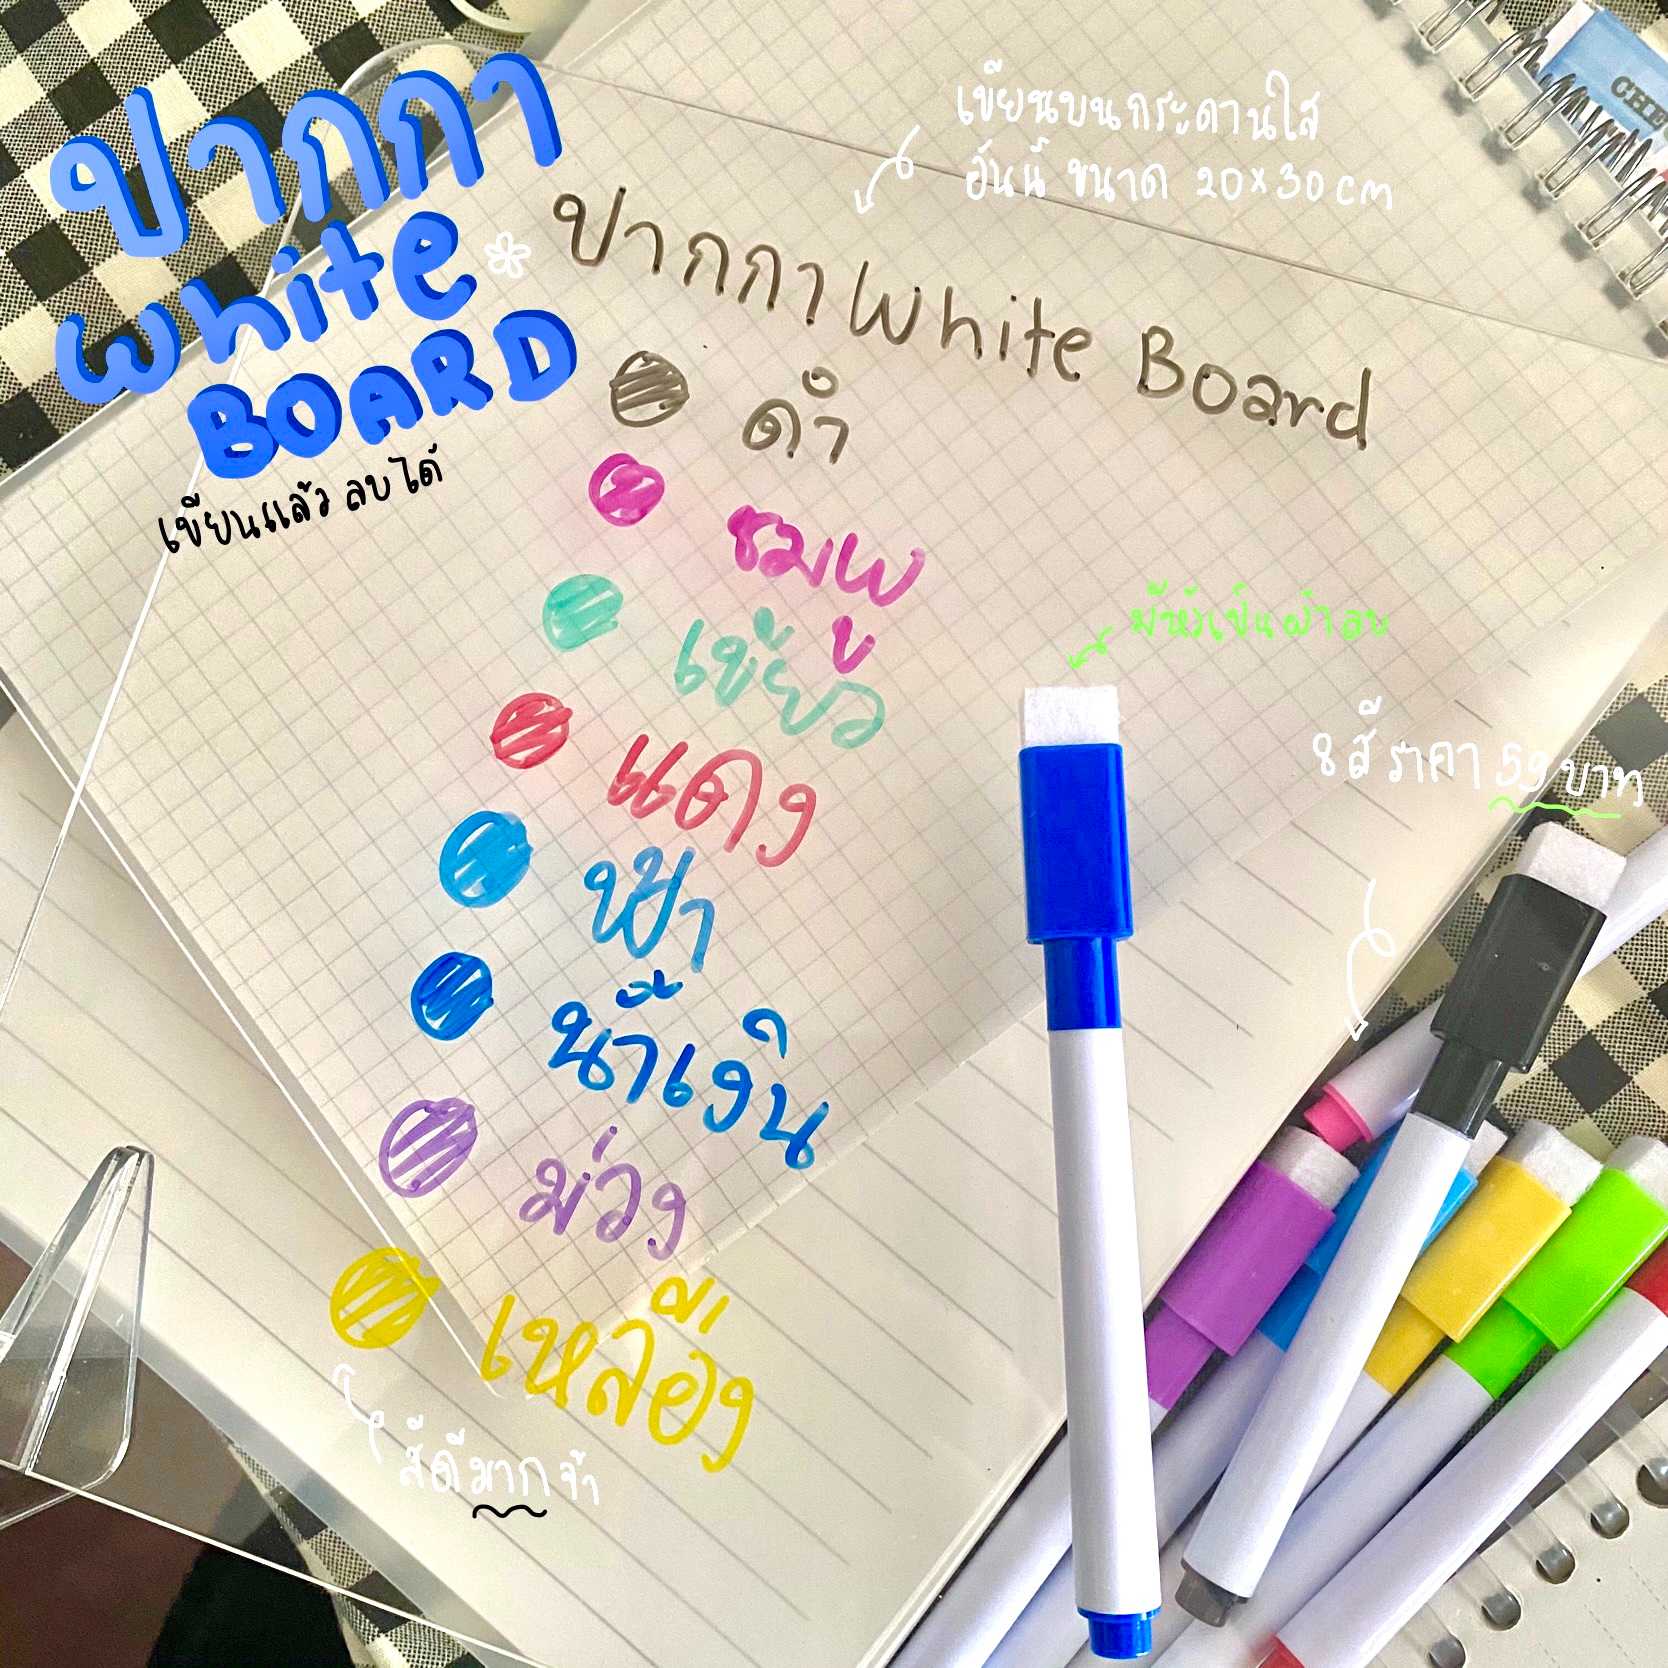 ปากกา
white
BOARD
เขียนแล้ว ลบได้
เขียนบนกระดานใส
อันนี้ ขนาด 20×30 cm
CHE
ปากกา White Board
ดำ
ชมพู
เขียว
แดง
ฟ้า
น้ำเงิน
ม่วง
เหลือง
มีหัวเป็นผ้าลบ
8 สี ราคา 59 บาท
สีดีมากจ้า